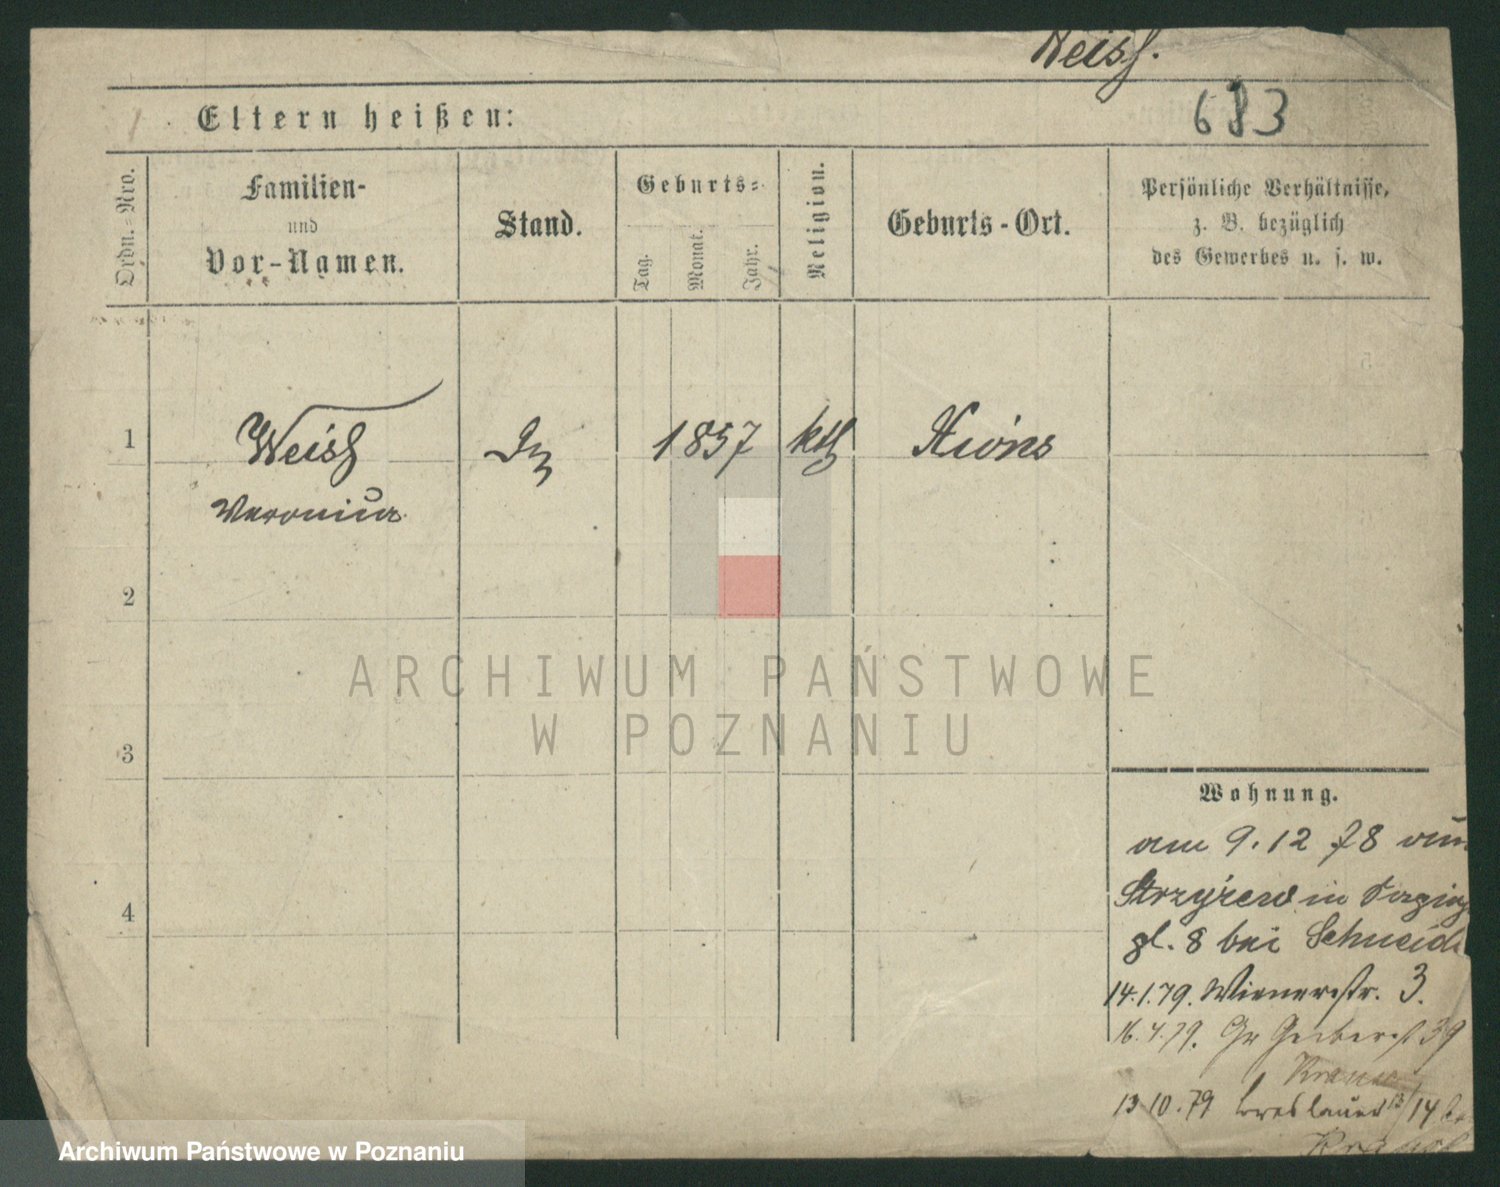 Weiß.
683
Eltern heißen:
Ordn.-Nro.
Familien-
und
Vor-Namen.
Stand.
Geburts-
Tag.
Monat.
Jahr.
Religion.
Geburts-Ort.
Persönliche Verhältnisse,
z. B. bezüglich
des Gewerbes u. s. w.
1
Weiß
Veronica
1857
kth
Xions
2
3
4
Wohnung.
am 9.12 78 aus
Strzyżewo in
gl. 8 bei Schneid
14.1.79. Wienerstr. 3.
16.4.79. Gr Gerberst 39
Krause
13 10.79 Breslauer 13/14
ARCHIWUM PAŃSTWOWE
W POZNANIU
Archiwum Państwowe w Poznaniu